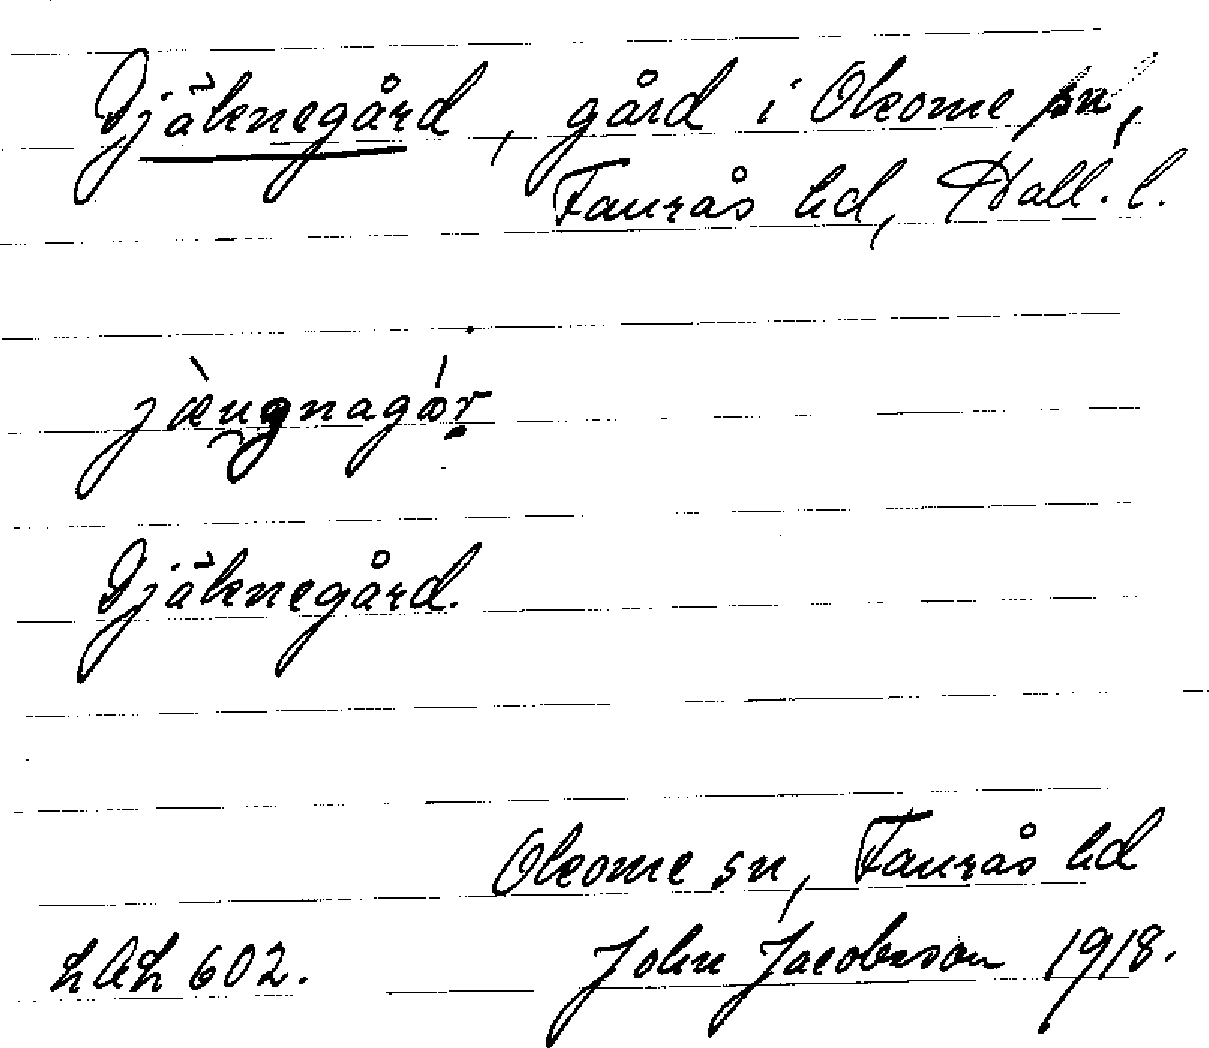 Gjäknegård, gård i Okome sn,
Faurås hd, Hall. l.
jæ̀ŋnagår
Gjäknegård.
Okome sn, Faurås hd
LAL 602. John Jacobsson 1918.